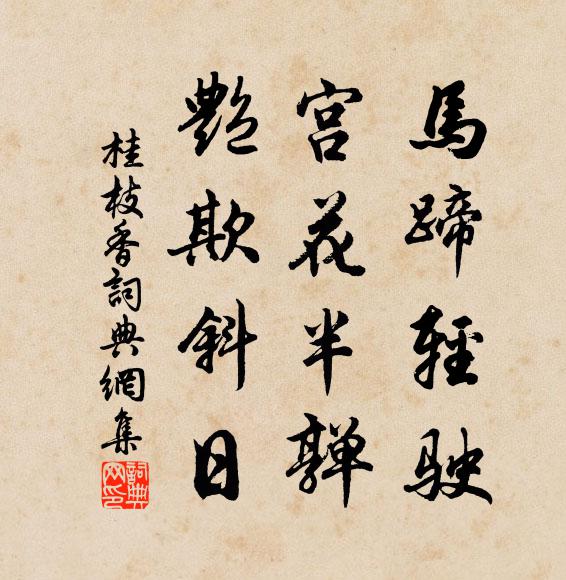 馬蹄輕駛
宮花半嚲
艷欺斜日
桂枝香詞典網集
詞典网印